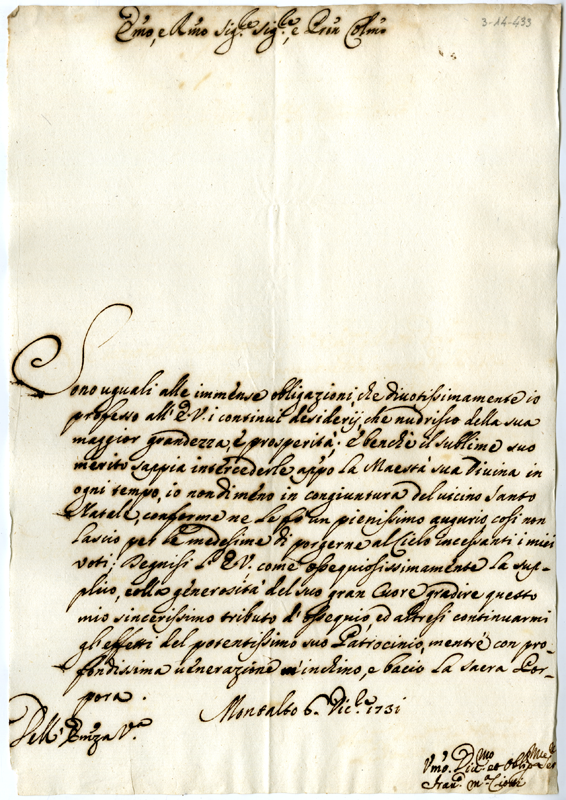 3-14-433
Emo, e Rmo Sig.re Sig.re, e Pron Colmo
Sono uguali alle immense obligazioni, che divotissimamente io
professo all' E.V. i continui desiderij, che nudrisco della sua
maggior grandezza, e prosperità. E benche il sublime suo
merito sappia intercederle appo la Maestà sua Divina in
ogni tempo, io nondimeno in congiuntura del vicino Santo
Natale, conforme ne le fò un pienissimo augurio, così non
lascio per le medesime di porgerne al Cielo incessanti i miei
voti. Degnisi l' E.V. come ossequiosissimamente la sup-
plico, colla generosità del suo gran Cuore gradire questo
mio sincerissimo tributo d'ossequio, ed altresì continuarmi
gl'effetti del potentissimo suo Patrocinio, mentre con pro-
fondissima venerazione m'inchino, e bacio la sacra Por-
pora.
Montalto 6. Dic.re 1731
Dell' Emza V.a
Vmo. Div.mo et Obli
Fran. M.a